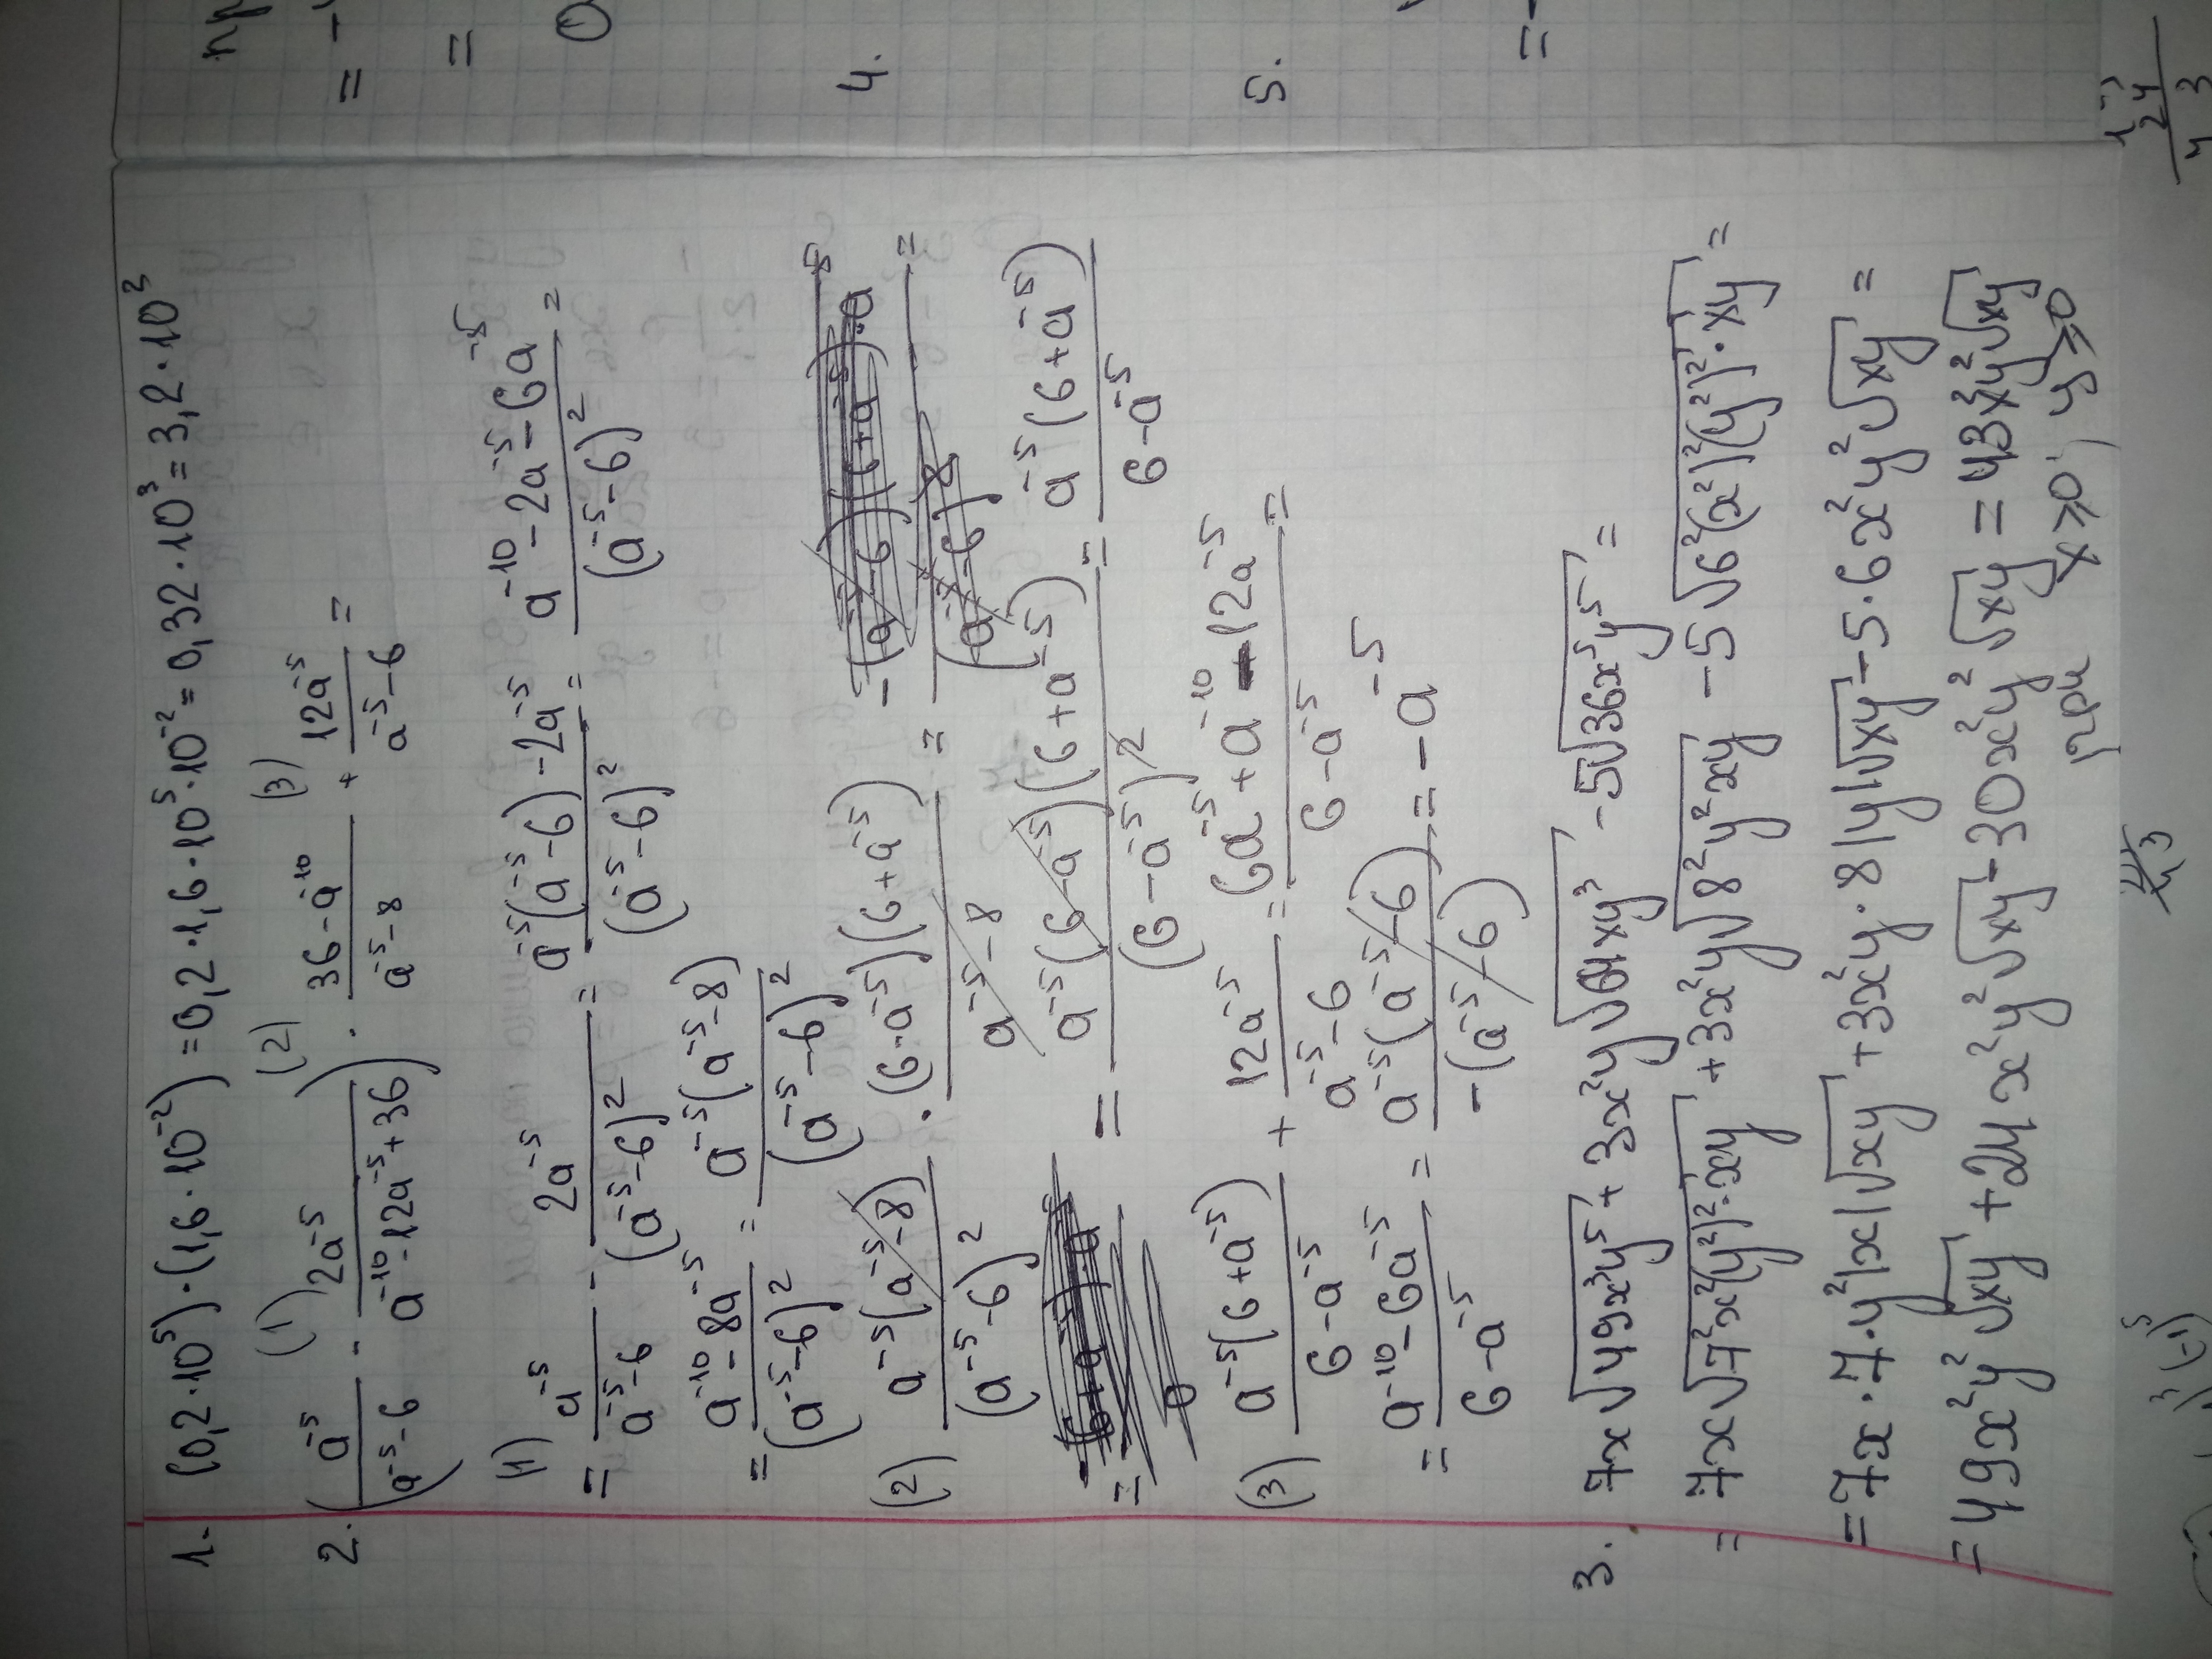 1. (0,2·10⁵)·(1,6·10⁻²) = 0,2·1,6·10⁵·10⁻² = 0,32·10³ = 3,2·10³
2. (a⁻⁵/(a⁻⁵-6) - 2a⁻⁵/(a⁻¹⁰-12a⁻⁵+36)) · (36-a⁻¹⁰)/(a⁻⁵-8) + 12a⁻⁵/(a⁻⁵-6) =
(1) (2) (3)
(1) a⁻⁵/(a⁻⁵-6) - 2a⁻⁵/(a⁻⁵-6)² = (a⁻⁵(a⁻⁵-6)-2a⁻⁵)/(a⁻⁵-6)² = (a⁻¹⁰-2a⁻⁵-6a⁻⁵)/(a⁻⁵-6)² =
= (a⁻¹⁰-8a⁻⁵)/(a⁻⁵-6)² = a⁻⁵(a⁻⁵-8)/(a⁻⁵-6)²
(2) a⁻⁵(a⁻⁵-8)/(a⁻⁵-6)² · (6-a⁻⁵)(6+a⁻⁵)/(a⁻⁵-8) = =
= = a⁻⁵(6-a⁻⁵)(6+a⁻⁵)/(6-a⁻⁵)² = a⁻⁵(6+a⁻⁵)/(6-a⁻⁵)
(3) a⁻⁵(6+a⁻⁵)/(6-a⁻⁵) + 12a⁻⁵/(a⁻⁵-6) = (6a⁻⁵+a⁻¹⁰-12a⁻⁵)/(6-a⁻⁵) =
= (a⁻¹⁰-6a⁻⁵)/(6-a⁻⁵) = a⁻⁵(a⁻⁵-6)/-(a⁻⁵-6) = -a⁻⁵
3. 7x√49x³y⁵ + 3x²y√64xy³ - 5√36x⁵y⁵ =
= 7x√7²x²(y²)²·xy + 3x²y√8²y²xy - 5√6²(x²)²(y²)²·xy =
= 7x·7·y²|x|√xy + 3x²y·8|y|√xy - 5·6x²y²√xy =
= 49x²y²√xy + 24x²y²√xy - 30x²y²√xy = 43x²y²√xy
при x≥0, y≥0
4.
5.